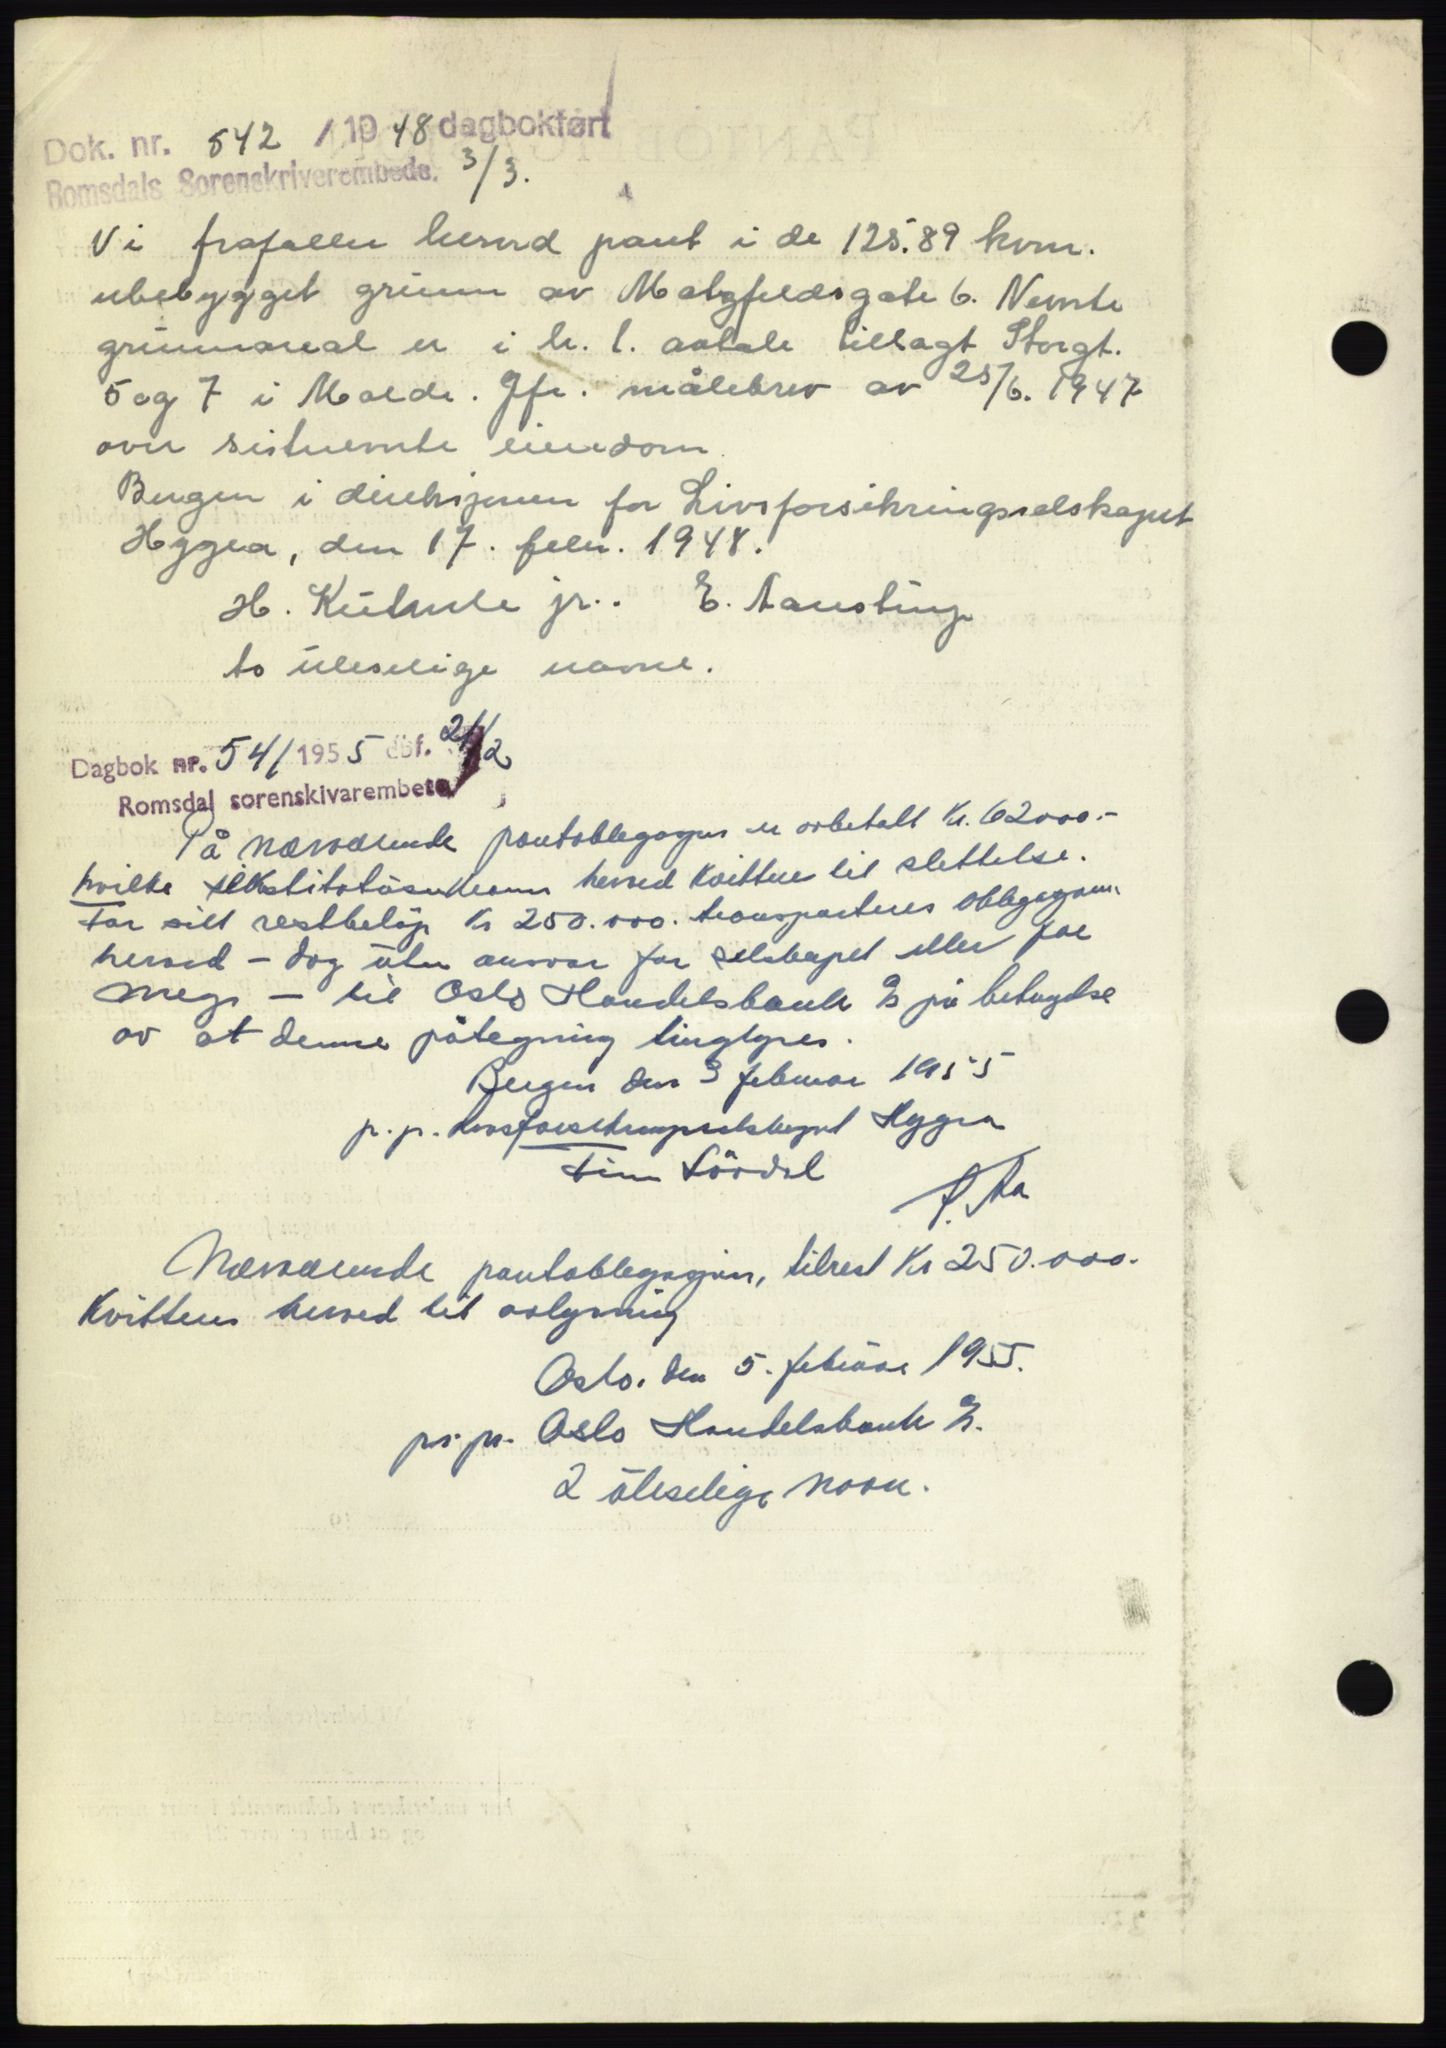 Dok. nr. 542 / 1948 dagbokført
Romsdals Sorenskriverembede. 3/3.
Vi frafaller herved pant i de 125.89 kvm.
ubebygget grunn av Moltzfeldsgate 6. Nevnte
grunnareal er i h. t. avtale tillagt Storgt.
5 og 7 i Molde. Jfr. målebrev av 25/6. 1947
over sistnevnte eiendom.
Bergen i direksjonen for Livsforsikringsselskapet
Hygea, den 17. febr. 1948.
H. jr.. E.
to uleselige navne.
Dagbok nr. 541/1955 dbf. 21/2
Romsdal sorenskrivarembete
På nærværende pantobligasjon er avbetalt Kr. 62000.-
hvilke herved kvitteres til slettelse.
For sitt restbeløp Kr 250.000. transporteres obligasjonen
herved - dog uten ansvar for selskapet eller for
meg - til Oslo Handelsbank A/S på betingelse
av at denne påtegning tinglyses.
Bergen den 3 februar 1955
p. p. Livsforsikringsselskapet Hygea
Finn
Nærværende pantobligasjon, tilrest Kr 250.000.
Kvitteres herved til avlysning
Oslo, den 5. februar 1955.
pr. pr. Oslo Handelsbank A/S.
2 uleselige navn.